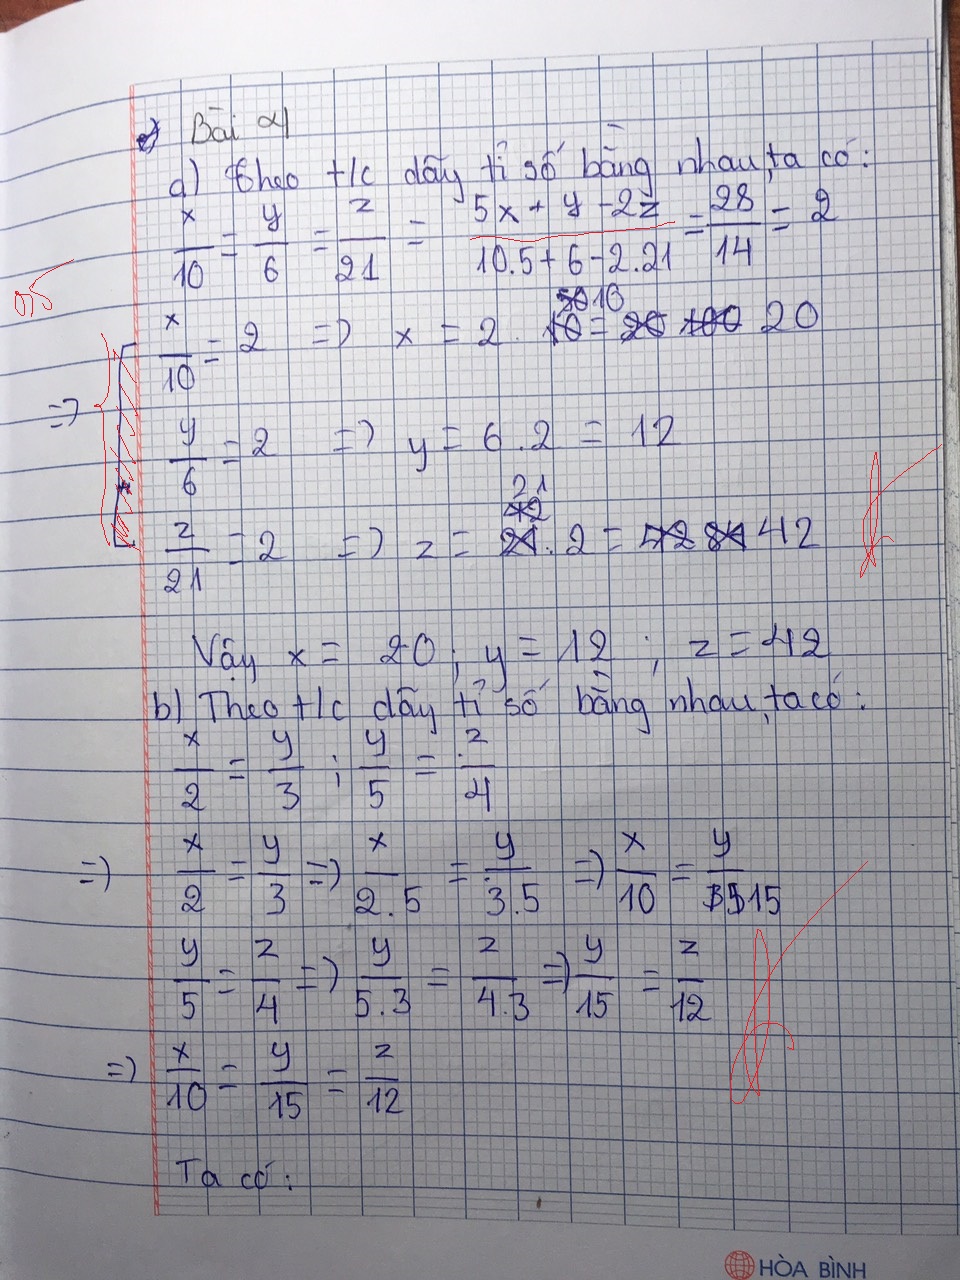 Bài 21
a) Theo t/c dãy tỉ số bằng nhau, ta có:
x/10 = y/6 = z/21 = (5x + y - 2z)/(10.5 + 6 - 2.21) = 28/14 = 2
0,5
x/10 = 2 => x = 2. 10 = 20
=>
y/6 = 2 => y = 6.2 = 12
z/21 = 2 => z = 21.2 = 42
Vậy x = 20; y = 12; z = 42
b) Theo t/c dãy tỉ số bằng nhau, ta có:
x/2 = y/3 ; y/5 = z/4
=> x/2 = y/3 => x/2.5 = y/3.5 => x/10 = y/15
y/5 = z/4 => y/5.3 = z/4.3 => y/15 = z/12
=> x/10 = y/15 = z/12
Ta có:
HÒA BÌNH